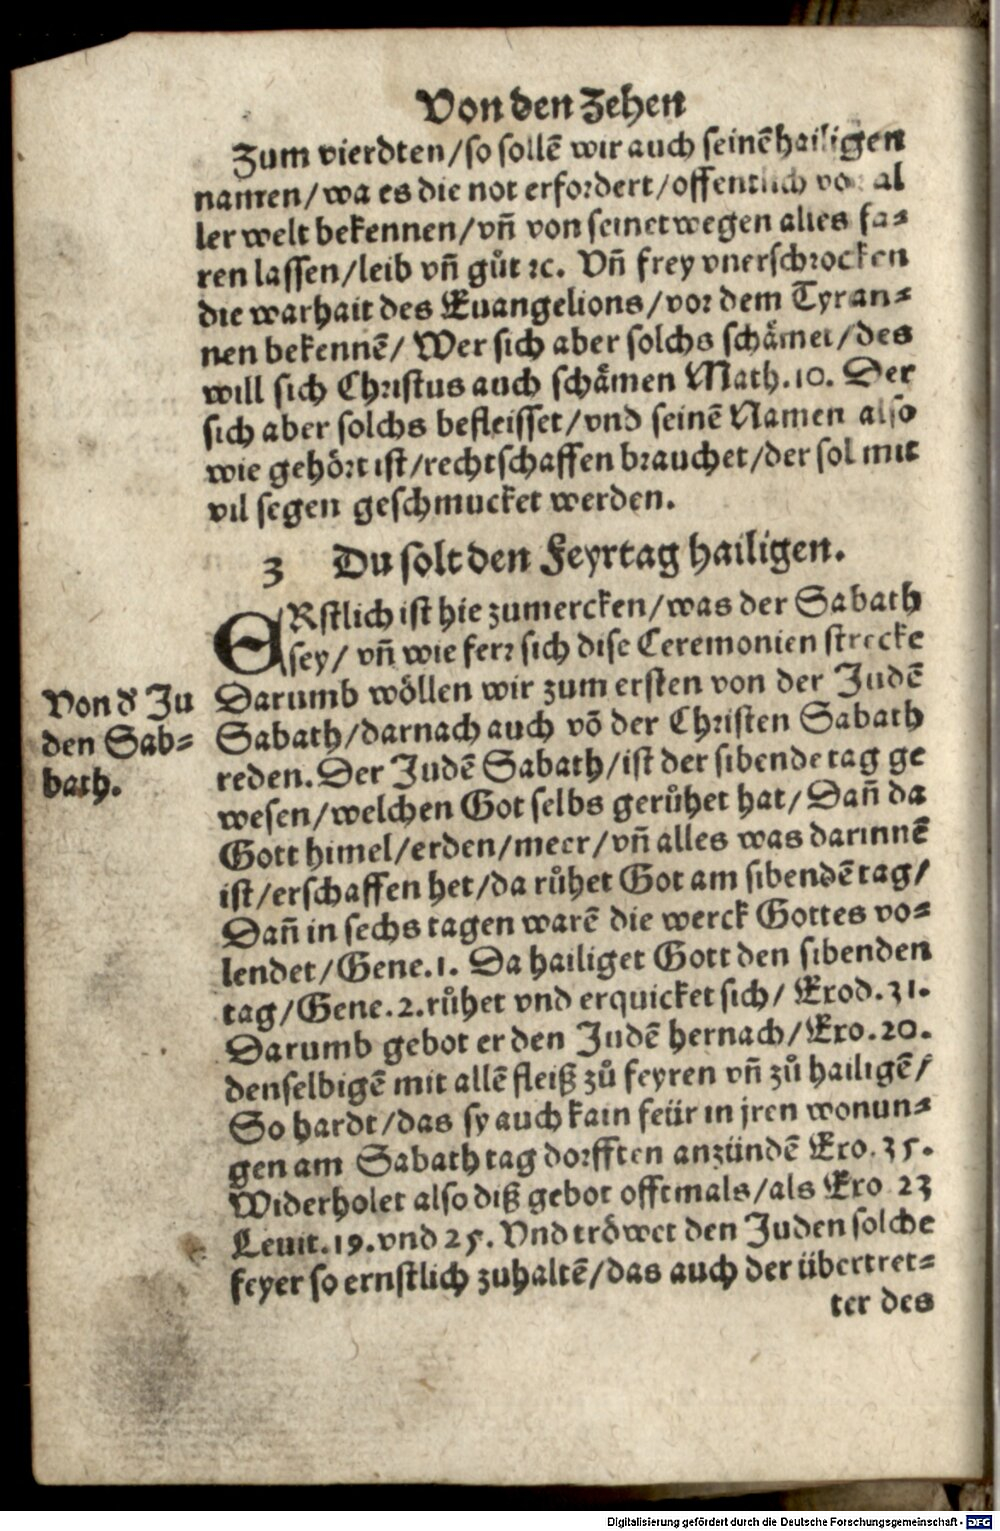 Von den Zehen
Zum vierdten/so sollẽ wir auch seinẽ hailigen
namen/wa es die not erfordert/offentlich vor al
ler welt bekennen/vñ von seinet wegen alles fa⸗
ren lassen/leib vñ gůt ꝛc. Vñ frey vnerschrocken
die warhait des Euangelions/vor dem Tyran⸗
nen bekennẽ/ Wer sich aber solchs schåmet/des
will sich Christus auch schåmen Math.10. Der
sich aber solchs befleisset/vnd seinẽ Namen also
wie gehört ist/rechtschaffen brauchet/der sol mit
vil segen geschmucket werden.
3 Du solt den Feyrtag hailigen.
ERstlich ist hie zumercken/was der Sabath
sey/ vñ wie ferr sich dise Ceremonien strecke
Darumb wöllen wir zum ersten von der Judẽ
Von d' Ju
den Sab⸗
bath.
Sabath/darnach auch võ der Christen Sabath
reden. Der Judẽ Sabath/ist der sibende tag ge
wesen/welchen Got selbs gerůhet hat/ Dañ da
Gott himel/erden/meer/vñ alles was darinnẽ
ist/erschaffen het/da růhet Got am sibendẽ tag/
Dañ in sechs tagen warẽ die werck Gottes vo⸗
lendet/Gene.1. Da hailiget Gott den sibenden
tag/Gene.2.růhet vnd erquicket sich/ Exod.31.
Darumb gebot er den Judẽ hernach/Exo.20.
denselbigẽ mit allẽ fleiß zů feyren vñ zů hailigẽ/
So hardt/das sy auch kain feür in jren wonun⸗
gen am Sabath tag dorfften anzündẽ Exo.35.
Widerholet also diß gebot offtmals/als Exo 23
Leuit.19.vnd 25. Vnd tröwet den Juden solche
feyer so ernstlich zuhaltẽ/das auch der übertret⸗
ter des
Digitalisierung gefördert durch die Deutsche Forschungsgemeinschaft - DFG